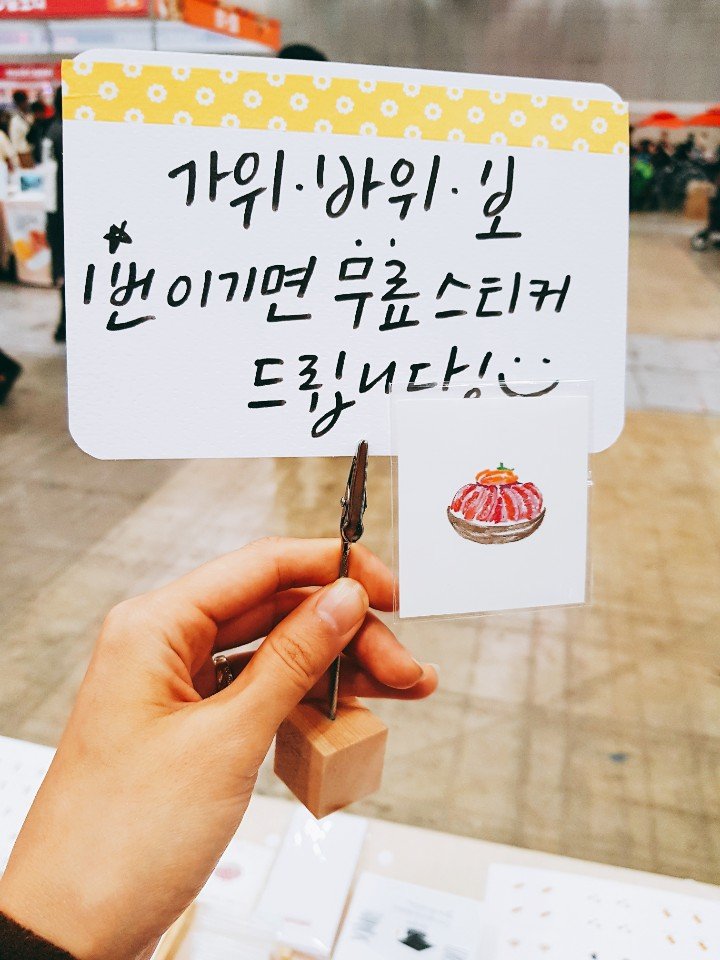 가위·바위·보
1번 이기면 무료 스티커
드립니다!